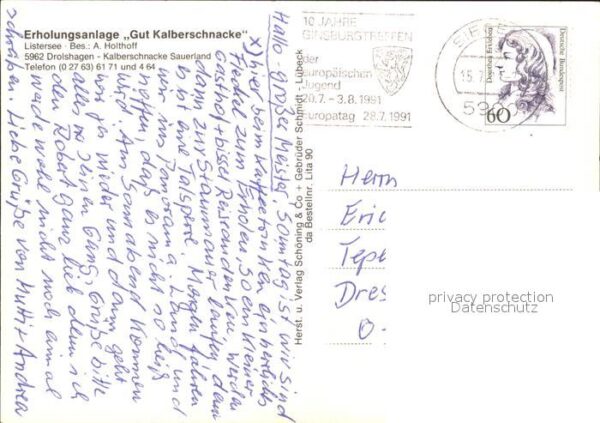 Erholungsanlage „Gut Kalberschnacke"
Listersee · Bes.: A. Holthoff
5962 Drolshagen - Kalberschnacke Sauerland
Telefon (0 27 63) 61 71 und 4 64
Hallo große Meister, Sonntag ist, wir sind
x) hier beim Kaffeetrinken ein herrliches
Fleckel zum Erholen, so ein kleiner
Gasthof + bissel Reiseandenken, werden
dann zur Staumauer laufen, denn
es ist eine Talsperre. Morgen fahren
wir ins Panorama-Land und
hoffen, daß es nicht so heiß
wird. Am Sonnabend kommen
wir ja wieder und dann geht
alles seinen Gang. Grüße bitte
den Robert ganz lieb denn ich
werde wohl nicht noch einmal
schreiben. Liebe Grüße von Mutti + Andrea
Herst. u. Verlag Schöning & Co + Gebrüder Schmidt - Lübeck
da Bestellnr. Lita 90
10 JAHRE
GINSBURGTREFFEN
der
europäischen
Jugend
20.7. - 3.8.1991
Europatag 28.7.1991
Deutsche Bundespost
60
Herrn
Eric
Tepe
Dres
O-
privacy protection
Datenschutz